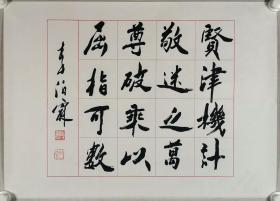 賢津機計
敬迷之萬
尊破乘以
屈指可數
李伯霖